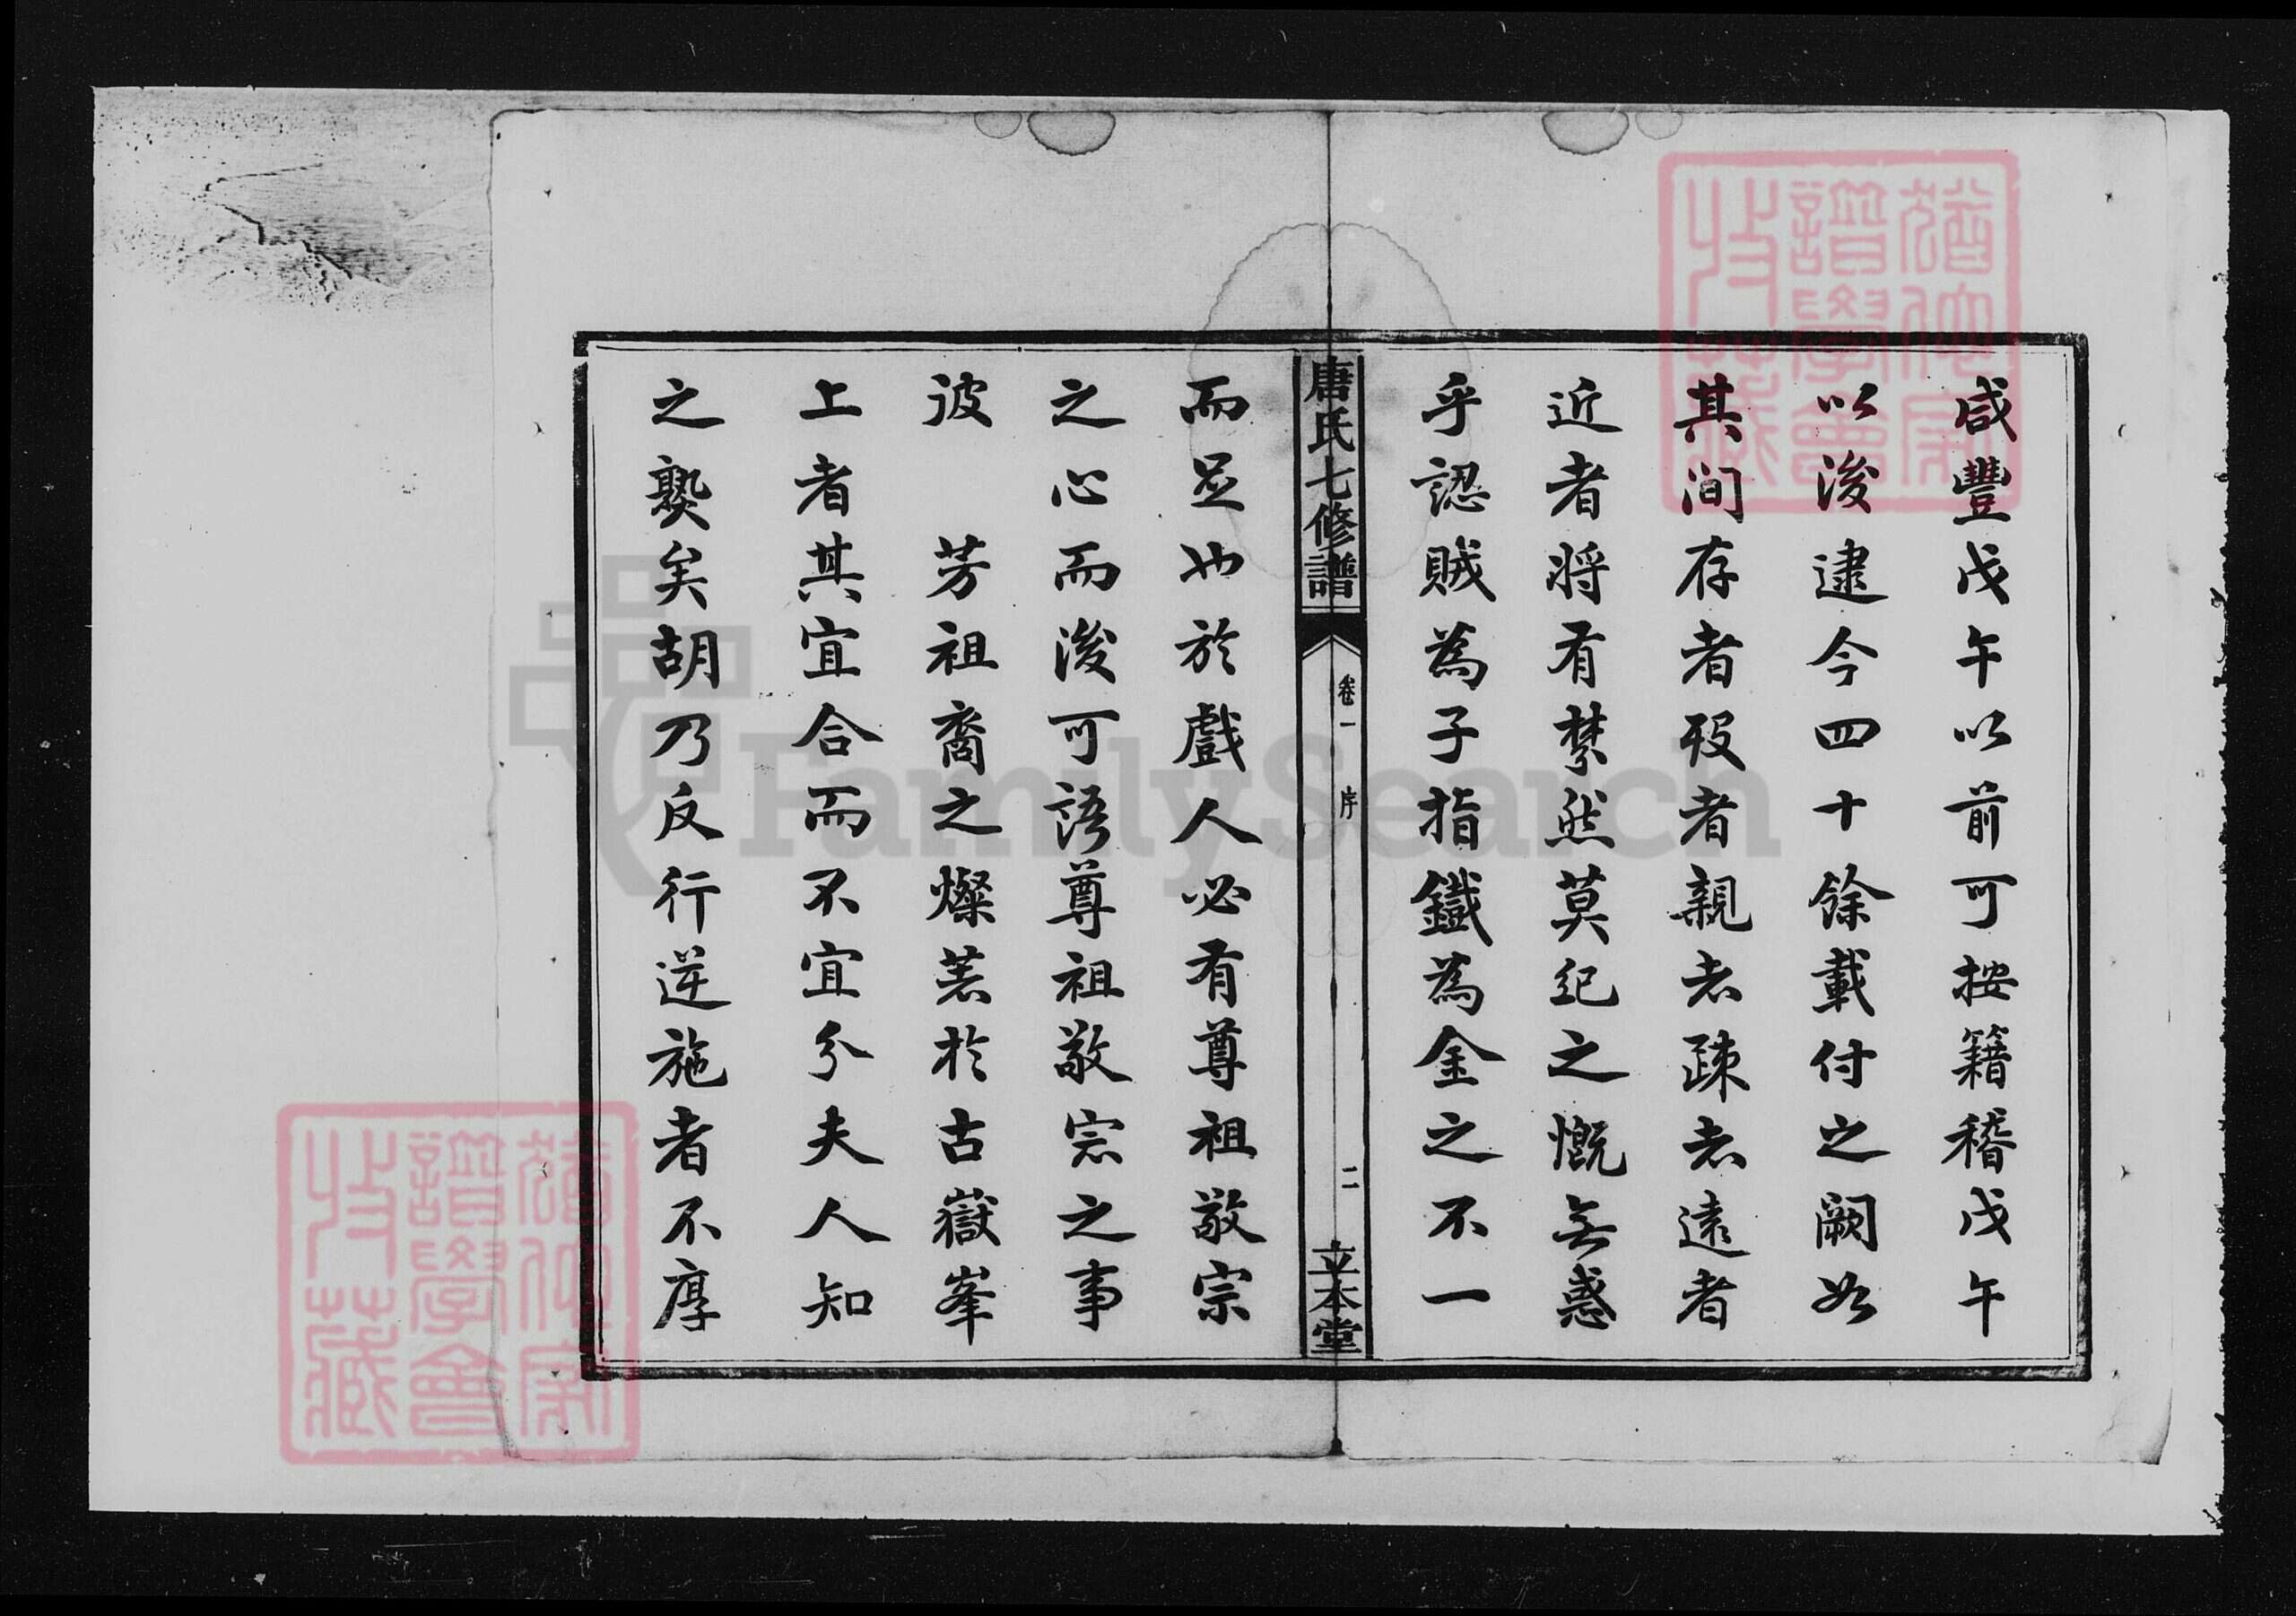 咸豐戊午以前可按籍稽戊午
以後逮今四十餘載付之闕如
其间存者殁者親者疎者遠者
近者将有棼然莫纪之慨無惑
乎認賊為子指鐵為金之不一
唐氏七修譜
卷一
序
二
立本堂
而足也於戲人必有尊祖敬宗
之心而後可語尊祖敬宗之事
彼 芳祖裔之燦著於古嶽峯
上者其宜合而不宜分夫人知
之熟矣胡乃反行逆施者不厚
FamilySearch
譜學會
收藏
譜學會
收藏